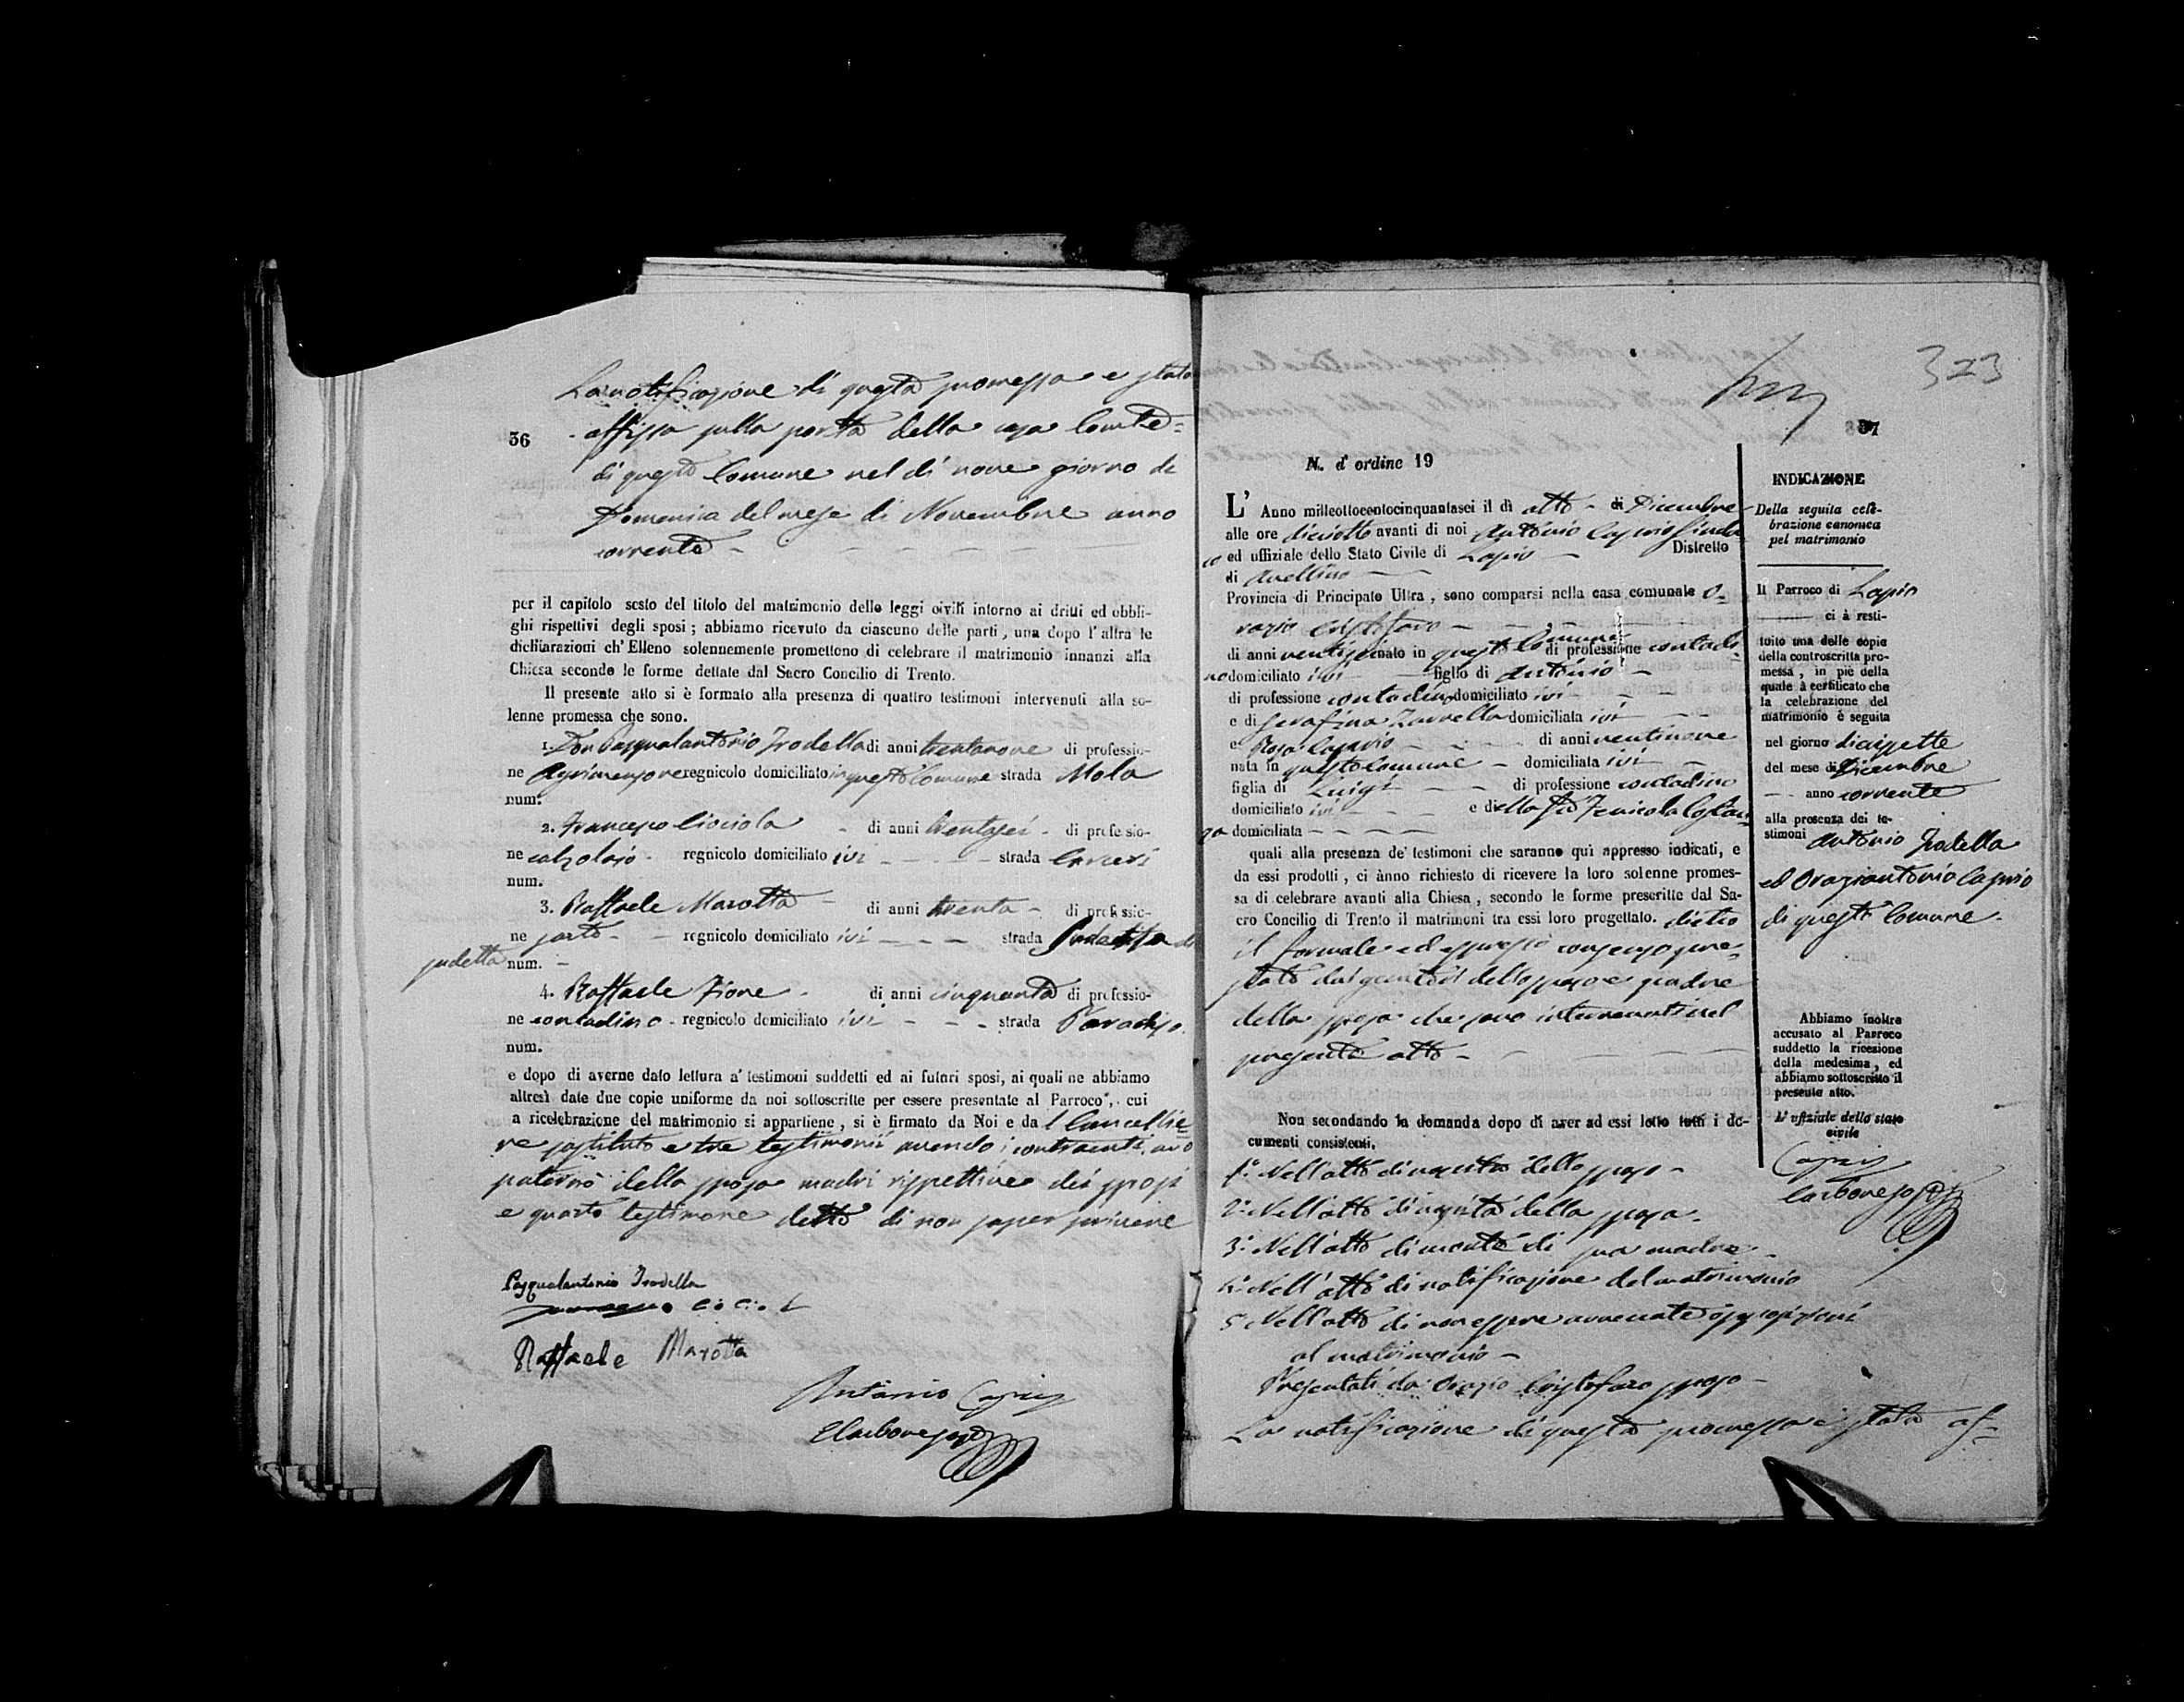 La notificazione di questa promessa e stata
36
affissa sulla porta della casa Comle
di questo Comune nel dì nove giorno di
Domenica del mese di Novembre anno
corrente
per il capitolo sesto del titolo del matrimonio delle leggi civili intorno ai dritti ed obbli-
ghi rispettivi degli sposi; abbiamo ricevuto da ciascuno delle parti, una dopo l'altra le
dichiarazioni ch'Elleno solennemente promettono di celebrare il matrimonio innanzi alla
Chiesa secondo le forme dettate dal Sacro Concilio di Trento.
Il presente atto si è formato alla presenza di quattro testimoni intervenuti alla so-
lenne promessa che sono.
1. Don Pasqualantonio Frodella di anni trentanove di professio-
ne Agrimensore regnicolo domiciliato in questo Comune strada Mola
num.
2. Francesco Ciociola di anni trentasei di professio-
ne calzolaio regnicolo domiciliato ivi strada Carceri
num.
3. Raffaele Marotta di anni trenta di professio-
ne sarto regnicolo domiciliato ivi strada
num.
4. Raffaele Fiore di anni cinquanta di professio-
ne contadino regnicolo domiciliato ivi strada Paradiso.
num.
e dopo di averne dato lettura a' testimoni suddetti ed ai futuri sposi, ai quali ne abbiamo
altresì date due copie uniforme da noi sottoscritte per essere presentate al Parroco, cui
a ricelebrazione del matrimonio si appartiene, si è firmato da Noi e dal Cancellie
re sostituto e tre testimoni avendo i contraenti, avo
paterno della sposa madri rispettive dei sposi
e quarto testimone detto di non saper scrivere
Pasqualantonio Frodella
Raffaele Marotta
Antonio Caprio
Carbone sost
323
37
N. d' ordine 19
L' Anno milleottocentocinquantasei il dì otto di Dicembre
alle ore diciotto avanti di noi Antonio Caprio Sinda
co ed uffiziale dello Stato Civile di Lapio Distretto
di Avellino
Provincia di Principato Ultra, sono comparsi nella casa comunale O-
razio Cristofaro
di anni ventisei nato in questo Comune di professione contadi-
no domiciliato ivi figlio di Antonio
di professione contadino domiciliato ivi
e di Serafina Zarrella domiciliata ivi
e Rosa Caprio di anni ventinove
nata in questo Comune domiciliata ivi
figlia di Luigi di professione contadino
domiciliato ivi e di
domiciliata
quali alla presenza de' testimoni che saranno quì appresso indicati, e
da essi prodotti, ci ànno richiesto di ricevere la loro solenne promes-
sa di celebrare avanti alla Chiesa, secondo le forme prescritte dal Sa-
cro Concilio di Trento il matrimoni tra essi loro progettato. dietro
il formale ed espresso consenso pre-
stato dai genitori dello sposo e padre
della sposa che sono intervenuti nel
presente atto
Non secondando la domanda dopo di aver ad essi letto tutti i do-
cumenti consistenti,
1.° Nell'atto di nascita dello sposo
2.° Nell'atto di nascita della sposa
3.° Nell'atto di morte di sua madre
4.° Nell'atto di notificazione del matrimonio
5 Nell'atto di non essere avvenute opposizioni
al matrimonio
Presentati da Orazio Cristofaro sposo
La notificazione di questa promessa è stata af-
INDICAZIONE
Della seguita cele-
brazione canonica
pel matrimonio
Il Parroco di Lapio
ci à resti-
tuito una delle copie
della controscritta pro-
messa, in piè della
quale à certificato che
la celebrazione del
matrimonio è seguita
nel giorno dicissette
del mese di Dicembre
anno corrente
alla presenza dei te-
stimoni Antonio Frodella
ed Oraziantonio Caprio
di questo Comune
Abbiamo inoltre
accusato al Parroco
suddetto la ricezione
della medesima, ed
abbiamo sottoscritto il
presente atto.
L' uffiziale dello stato
civile
Caprio
Carbone sost